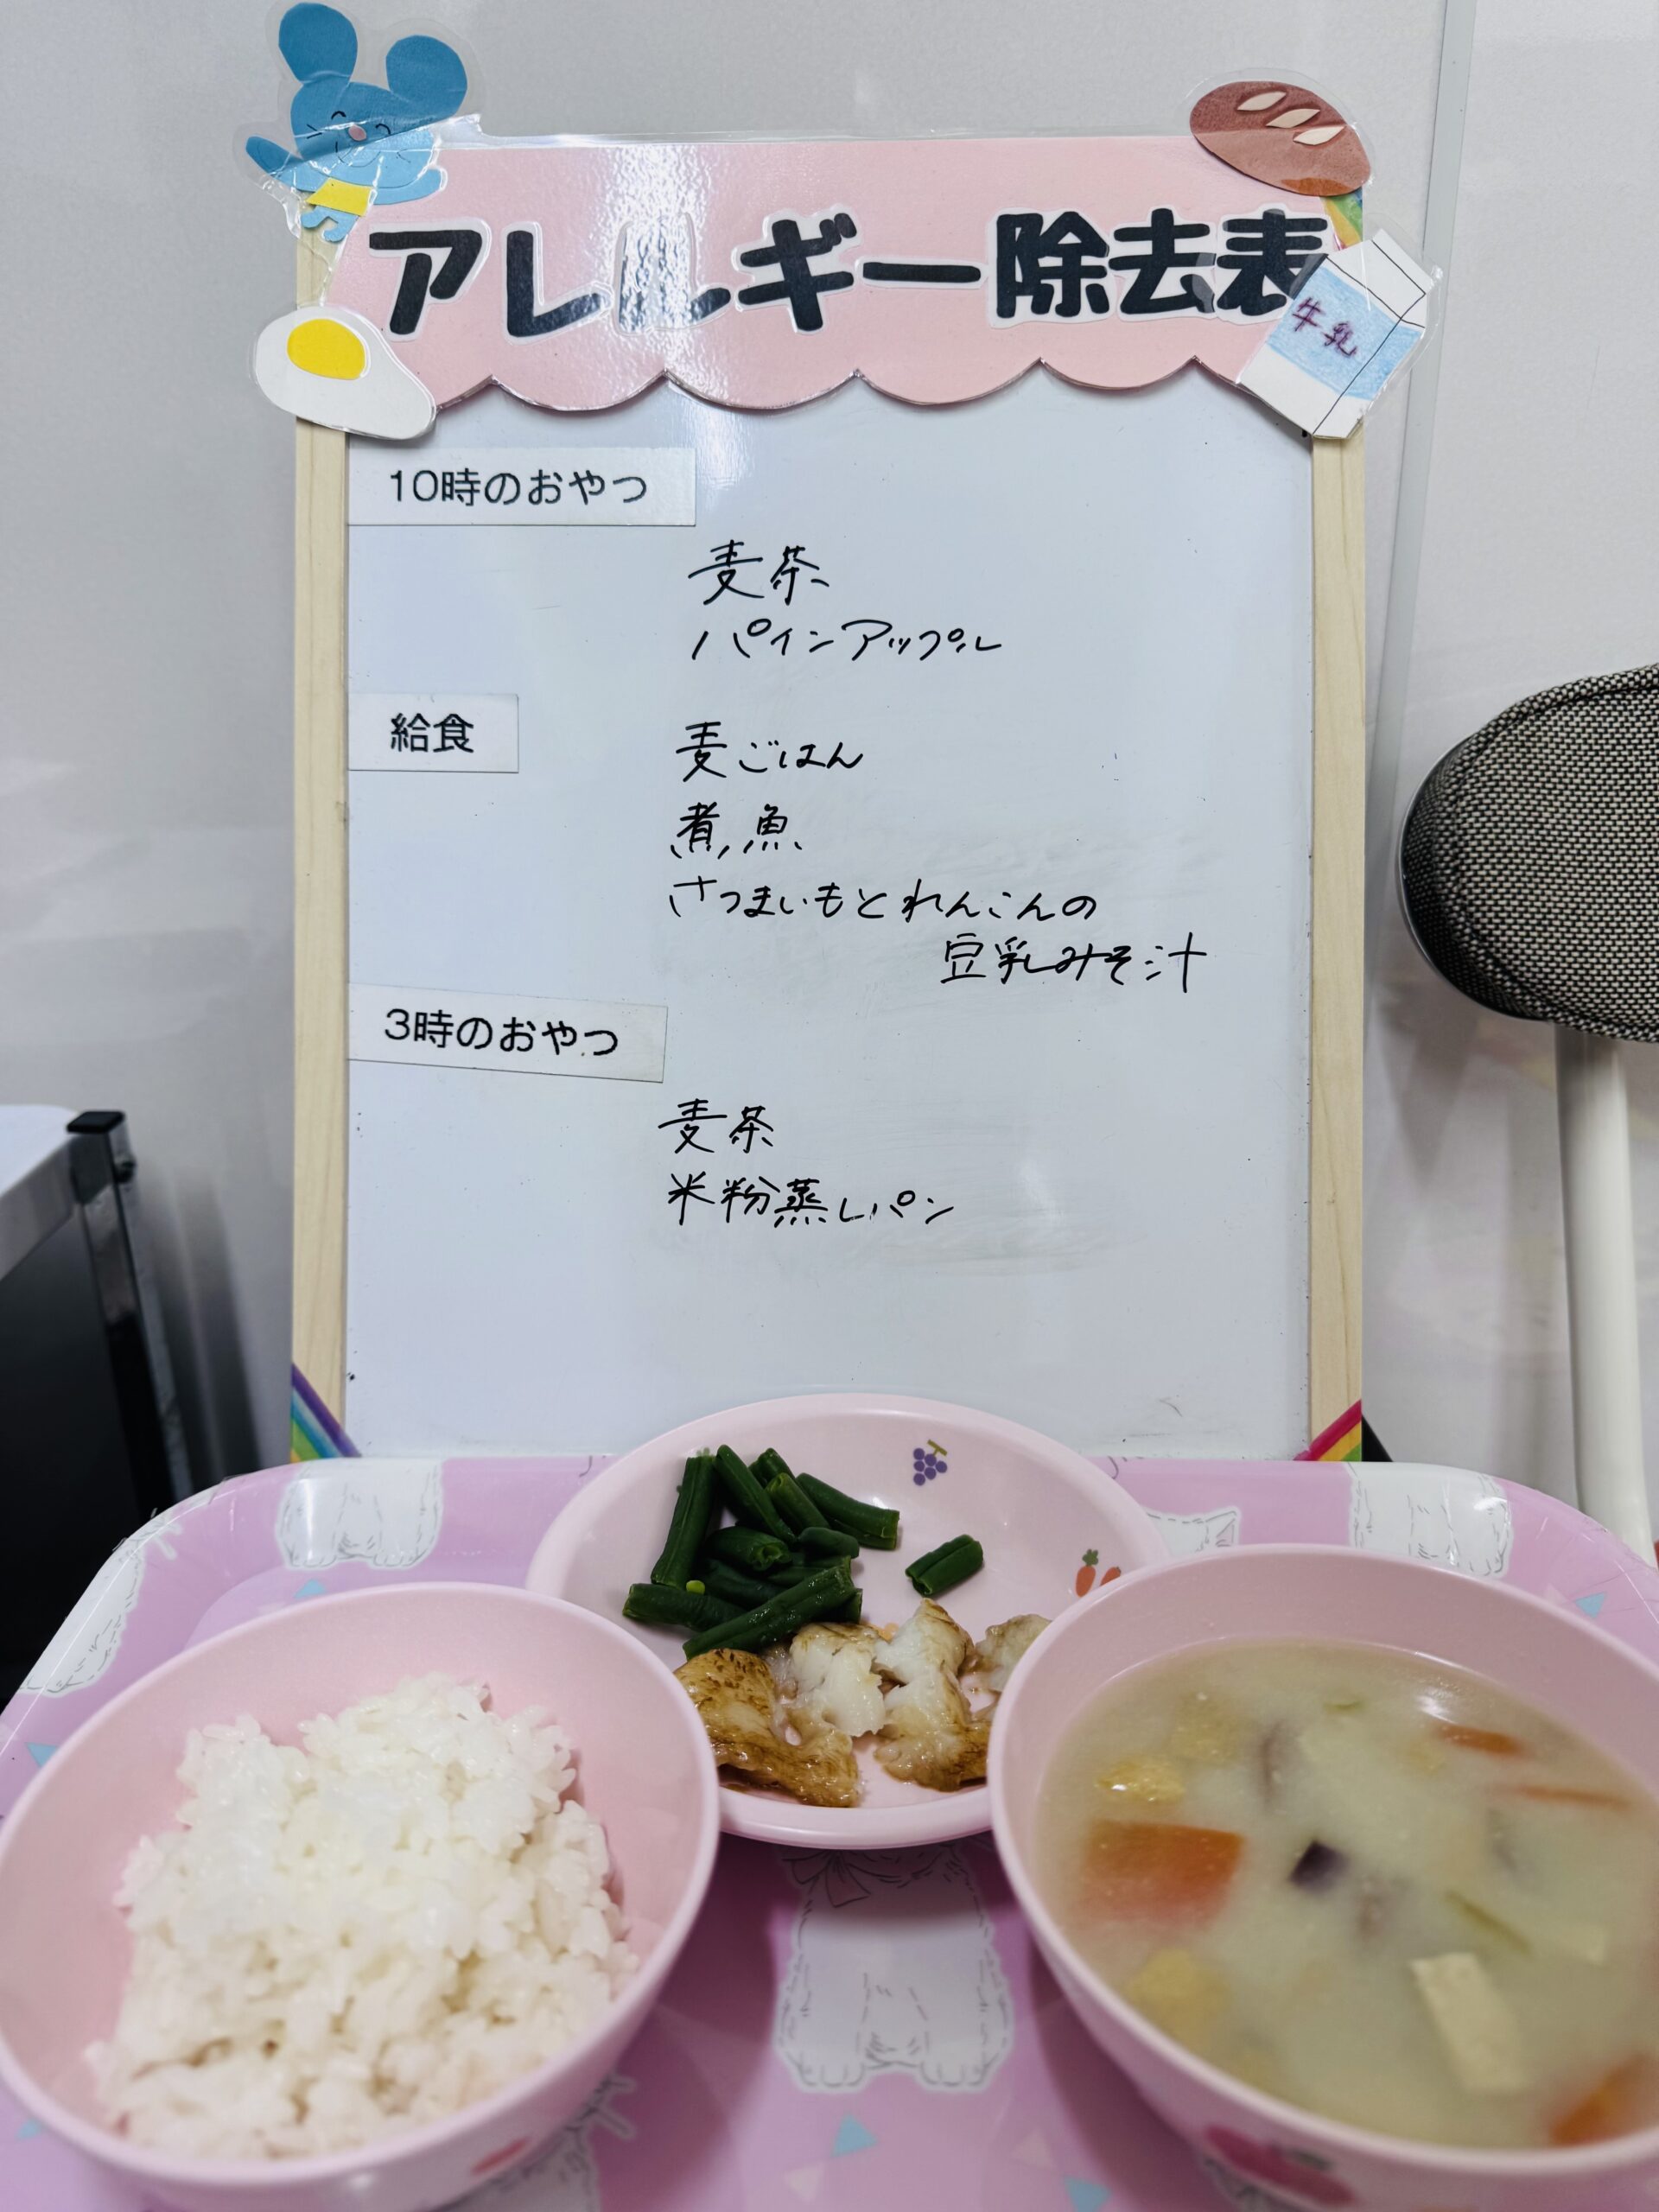 アレルギー除去表
牛乳
10時のおやつ
麦茶
パインアップル
給食
麦ごはん
煮魚
さつまいもとれんこんの
豆乳みそ汁
3時のおやつ
麦茶
米粉蒸しパン